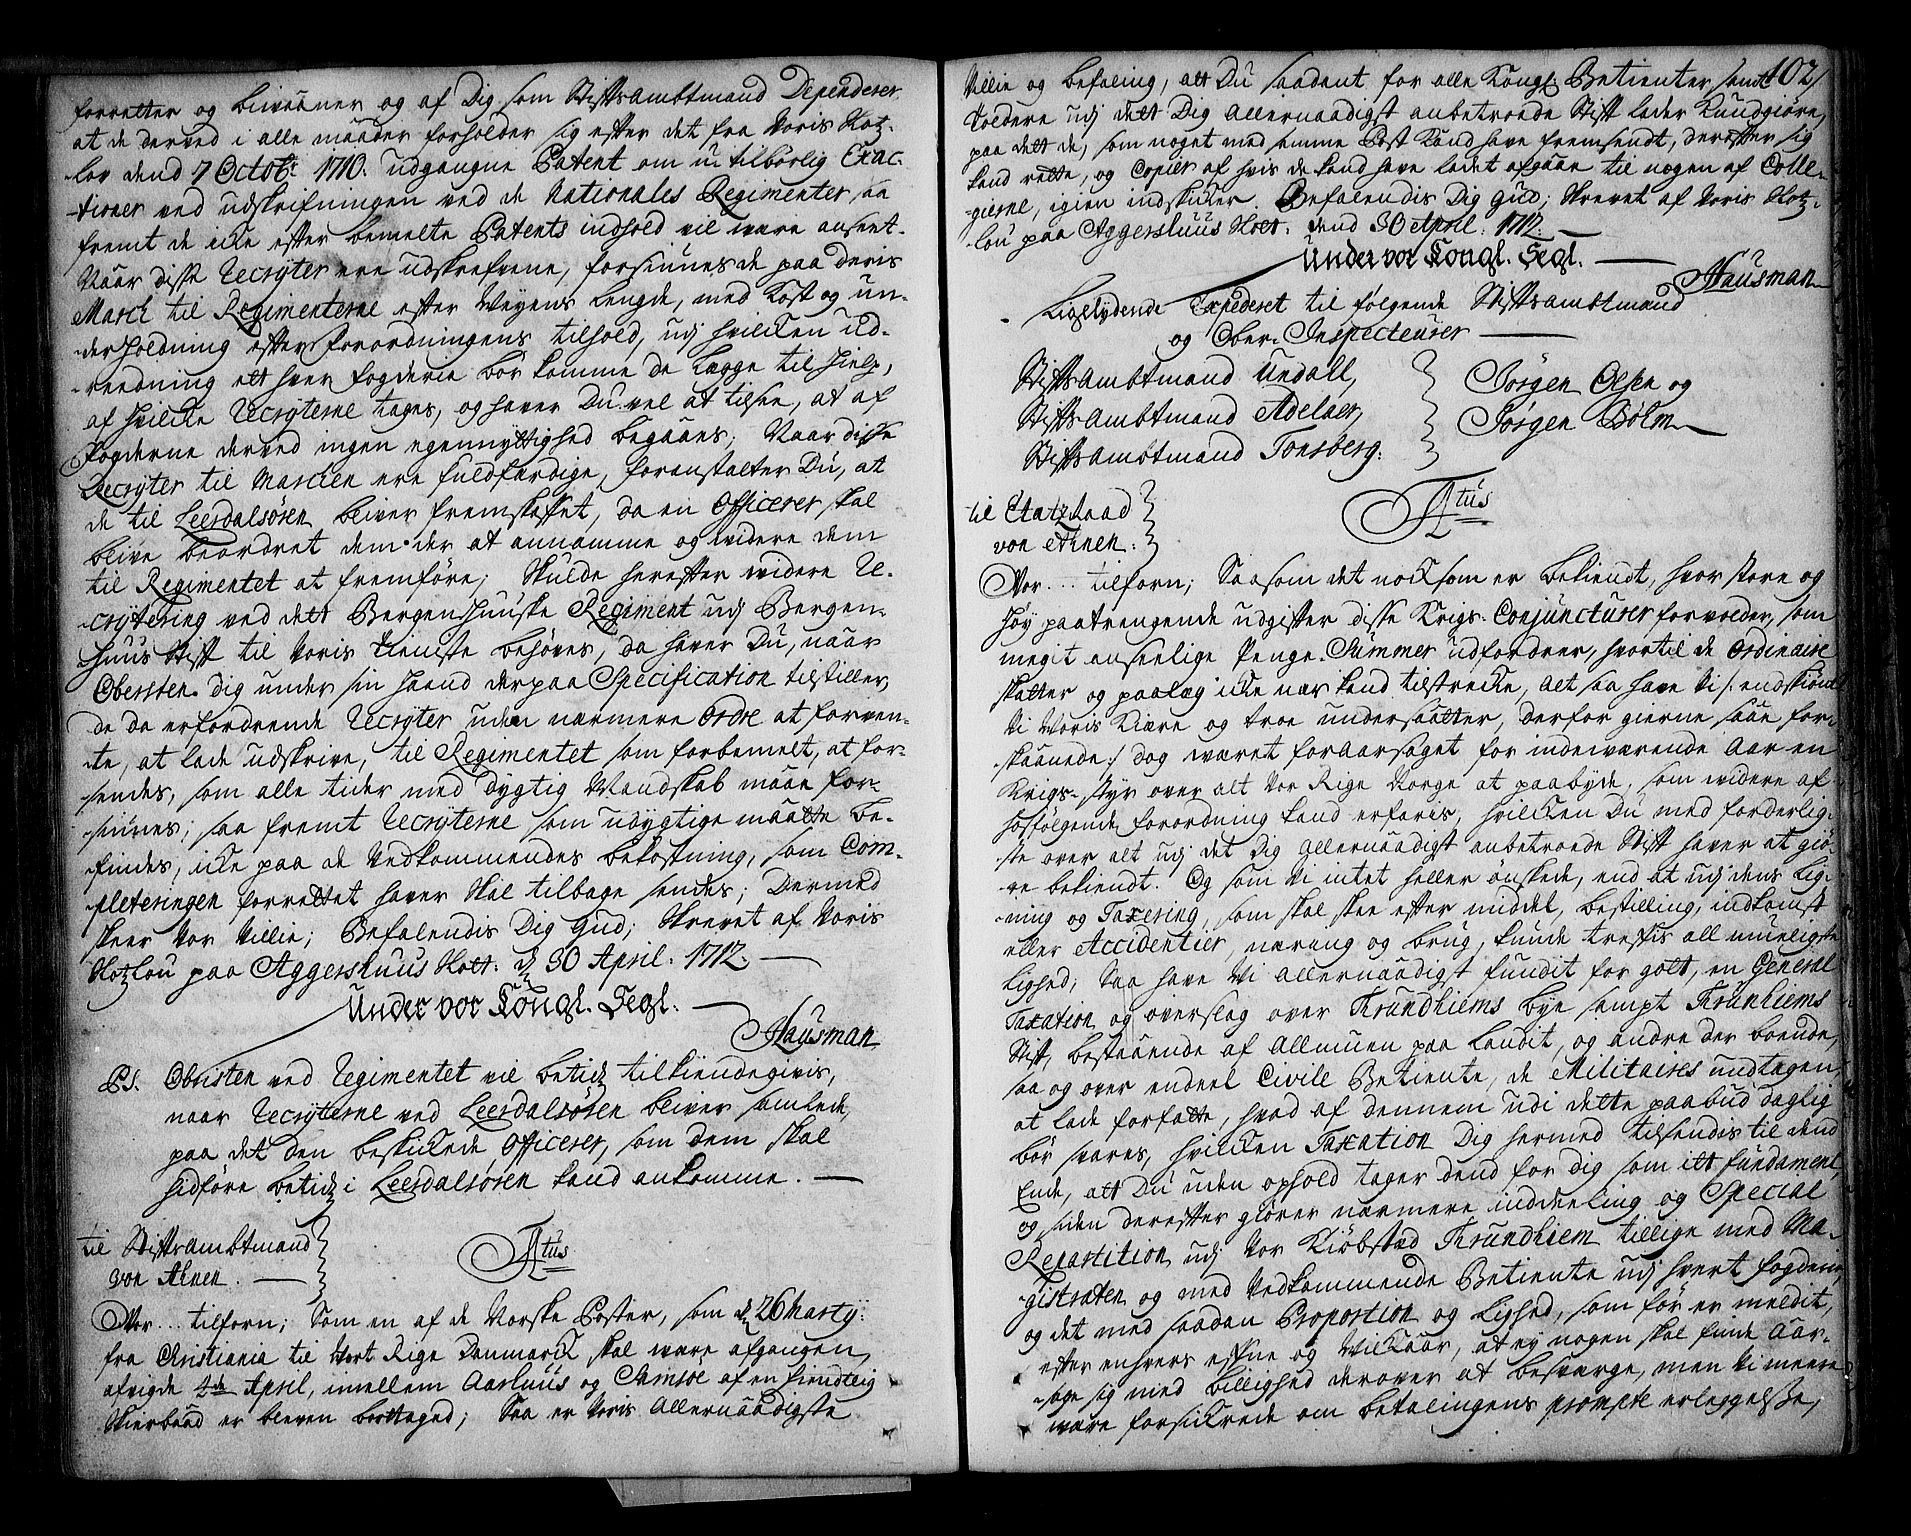 forretter og bivaaner og af Dig som Stifts Ambtmand Dependerer
at de derved i alle maader forholder sig efter det fra Voris Slotz-
-lov dend 7 Octobr: 1710. udgangne Patent om utilbørlig Exac-
-tioner ved udskrifningen ved de Nationales Regimenter, saa
fremt de icke efter bemelte Patents indhold vil være anseet.
Naar disse Recryter ere udskrefvene, forsiunes de paa deris
March til Regimenterne efter Veyens Lengde, med Kost og un-
-derholdning efter forordningens tilhold, udj hvilcken ud-
-reedning ett hver fogderie bør komme de Legge til hielp,
af hvilcke Recryterne tages, og haver Du vel at tilsee, at af
Fogderne derved ingen egennyttighed begaaes; Naar disse
Recryter til Marchen ere fuldfærdige, foranstalter Du, at
de til Leerdalsøren bliver fremskaffet, da en Officerer skal
blive beordret dem der at annamme og widere dem
til Regimentet at fremføre; Skulde herefter widere Re-
-crytering ved dett Bergenhuuske Regiment udj Bergen-
huus Stift til Voris tieniste behøves, da haver Du, naar
Obersten Dig under sin haand derpaa Specification tilstiller,
de da erfordrende Recryter uden nærmere Ordre at forven-
-te, at lade udskrive, til Regimentet som forbemelt, at for-
-sendes, som alle tider med dygtig Mandskab maae for-
-siunes; saa fremt Recryterne som udygtige maatte be-
-findes, icke paa de Vedkommendes bekostning, som Com-
-pleteringen forrettet haver skal tilbage sendes; Dermed
skeer Vor Villie; Befalendis Dig Gud; Skrevet af Voris
Slotzlou paa Aggershuus Slott: d 30 April. 1712.
Under vor Kongl. Segl.
Hausman
PS. Obristen ved Regimentet vil betids tilkiendegivis,
naar Recryterne ved Leerdalsøren bliver samlede,
paa det den beskickede Officerer, som dem skal
hidføre betids i Leerdalsøren kand ankomme.
til Stifts Ambtmand
von Ahnen.
Atus
Vor... tilforn; Som en af de Norske Poster, som d 26 Marty:
fra Christiania til Vort Rige Danmarck skal være afgangen,
afvigde 4de April, imellem Aarhuus og Samsøe af en fiendtlig
Skierbaad er bleven borttaged; Saa er Voris Allernaadigste
102
Villie og befaling, att Du saadant for alle Kongl: Betienter samt
Toldere udj dett Dig Allernaadigst anbetroede Stift lader Kundgiøre,
paa dett de, som noget med samme Post Kand have fremsendt, derefter sig
kand rette, og Copier af hvis de kand have ladet afgaae til nogen af Colle-
-gierne, igien indskicker. Befalendis Dig Gud; Skrevet af Voris Slotz-
-lou paa Aggershuus Slott: dend 30 April. 1712.
Under vor Kongl. Segl.
Hausman
Ligelydende Expederet til følgende Stifts ambtmænd
og Ober-Inspecteurer
Stifts Ambtmand Undall,
Stifts Ambtmand Adelaer,
Stifts Ambtmand Tonsberg.
Jørgen Olsen og
Jørgen Bølm
til Etatz Raad
von Ahnen:
Atus
Vor... tilforn; Saasom det nocksom er bekiendt, hvor store og
høy paatrengende udgifter disse Krigs-Conjuncturer forvolder, som
megit anseelige Penge-Summer udfordrer, hvortil de Ordinaire
skatter og paalæg icke nær kand tilstrecke, Alt saa have Vi /: endskiønt
Vi Voris Kiære og troe undersaatter, derfor gierne saae for-
-skaanede:/ dog været foraarsaget for indeværende Aar en
Krigs-styr over alt Vor Rige Norge at paabyde, som widere af
hosfølgende forordning kand erfaris, hvilcken Du med forderlig-
-ste over alt udj det Dig Allernaadigst anbetroede Stift haver at giø-
-re bekiendt. Og som Vi intet heller ønskede, end at udj dens Lig-
-ning og Taxering, som skal skee efter middel, bestilling, indkomst
eller Accidentier, næring og brug, kunde treffis all mueligste
Lighed, Saa have Vi Allernaadigst fundit for gott, en General
Taxation og overslag over Trundhiems bye sampt Trundhiems
Stift, bestaaende af Allmuen paa Landit, og andre der boende,
saa og over endeel Civile Betiente, de Militaires undtagen,
at lade forfatte, hvad af dennem udi dette paabud daglig
bør svares, hvilcken Taxation Dig hermed tilsendis til dend
Ende, att Du uden ophold tager dend for dig som itt fundament,
og siden derefter giører nærmere inddeeling og Special
Repartition udj Vor Kiøbsted Trundhiem tillige med Ma-
-gistraten og med Vedkommende Betiente udj hvert fogderie,
og det med saadan Proportion og Lighed, som før er meldit,
efter enhvers effne og Vilckaar, at ey nogen skal finde Aar-
-sage sig med billighed derover at besværge, men Vi meere
være forsickrede om betalingens prompte erleggelsse,